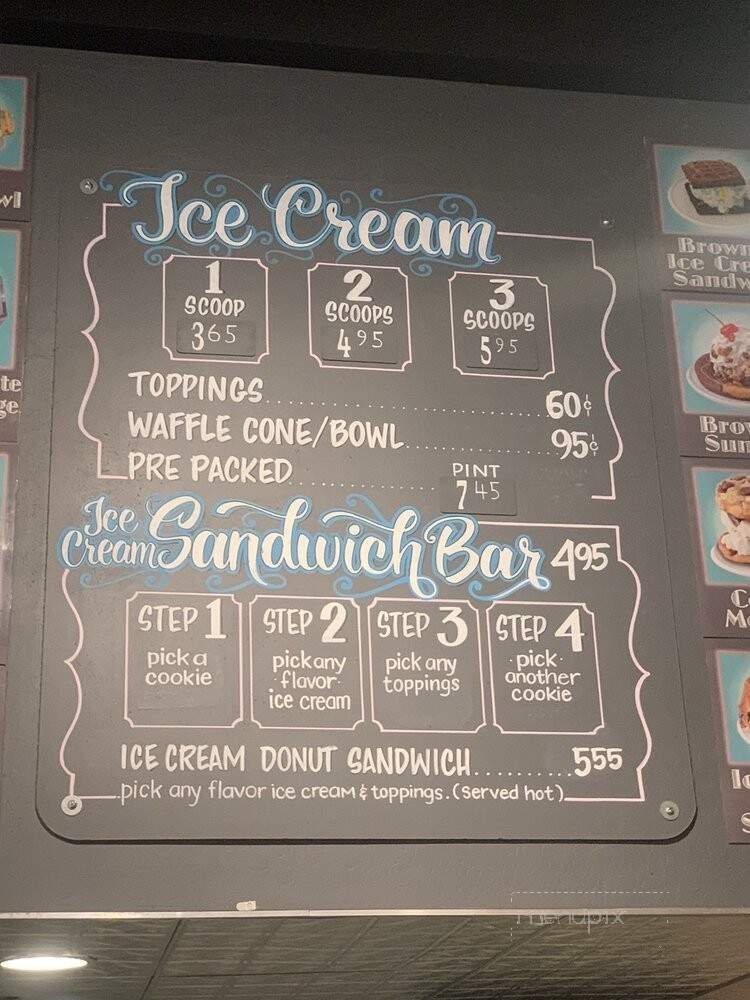 Ice Cream
1 SCOOP 3.65
2 SCOOPS 4.95
3 SCOOPS 5.95
TOPPINGS 60¢
WAFFLE CONE/BOWL 95¢
PRE PACKED PINT 7.45
Ice Cream Sandwich Bar 4.95
STEP 1
pick a
cookie
STEP 2
pick any
·flavor·
ice cream
STEP 3
pick any
toppings
STEP 4
·pick·
another
cookie
ICE CREAM DONUT SANDWICH 5.55
pick any flavor ice cream & toppings. (served hot)
menupix